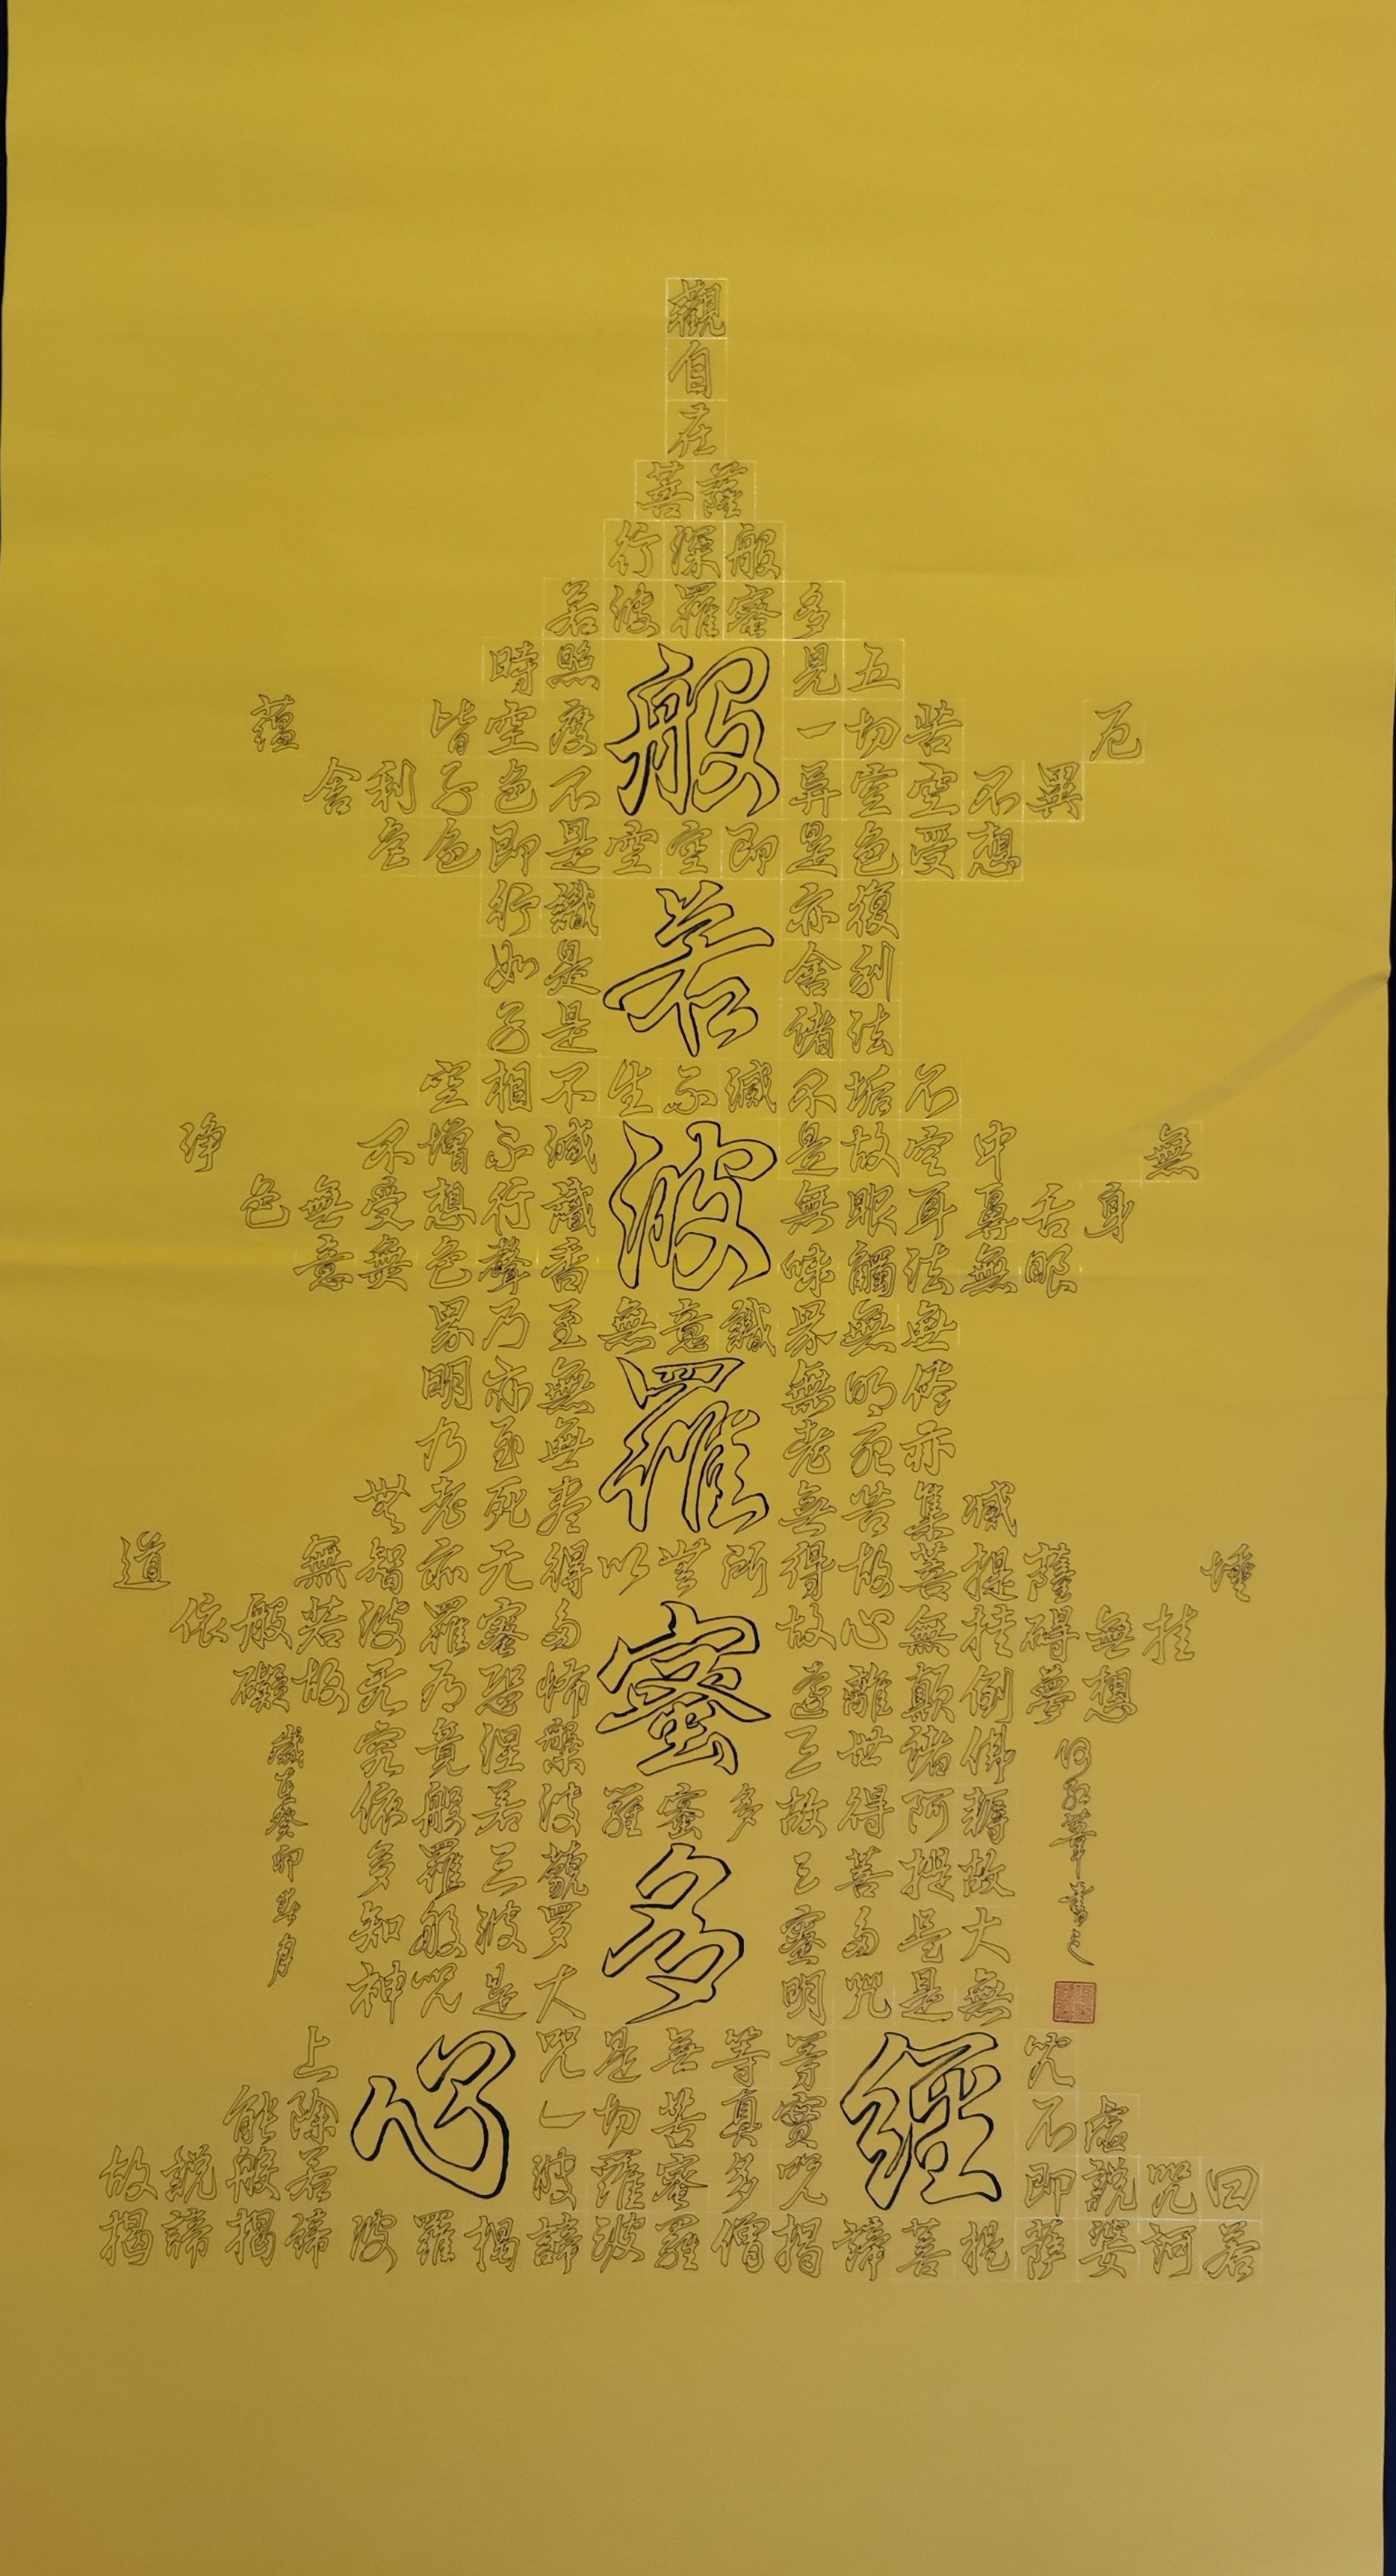 觀
自
在
菩薩
行深般
若波羅蜜多
時照見五
蘊皆空度一切苦厄
舍利子色不異空空不異
色色即是空空即是色受想
行識亦復
如是舍利
子是諸法
空相不生不滅不垢不
净不增不減是故空中無
色無受想行識無眼耳鼻舌身
意無色聲香味觸法無眼
界乃至無意識界無無
明亦無無明尽
乃至無老死亦
無老死尽無苦集滅
道無智亦无得以無所得故菩提薩埵
依般若波羅蜜多故心無挂碍無挂
礙故无有恐怖遠離顛倒夢想
究竟涅槃三世諸佛
依般若波羅蜜多故得阿耨
多羅三藐三菩提故
知般波罗蜜多是大
神咒是大明咒是無
上咒是無等等咒
能除一切苦真實不虛
故說般若波羅蜜多咒即說咒曰
揭諦揭諦波羅揭諦波羅僧揭諦菩提薩婆訶若
般若波羅蜜多
心經
歲在癸卯春月